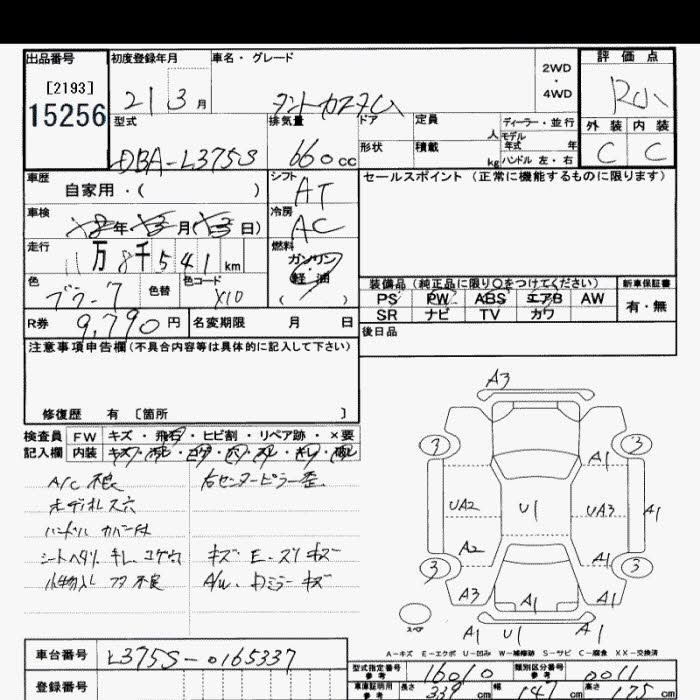 出品番号
[2193]
15256
初度登録年月
21 3 月
車名・グレード
タントカスタム
2WD
・
4WD
評価点
外装 内装
C C
型式
DBA-L375S
排気量
660 cc
ドア
形状
定員
人
積載
kg
ディーラー・並行
モデル
年式 年
ハンドル 左・右
車歴
自家用・( )
シフト
AT
車検
年 月( 日)
冷房
AC
走行
11万8千541 km
燃料
ガソリン
軽油
( )
色
色替
色コード
X10
R券 9,790 円
名変期限 月 日
セールスポイント(正常に機能するものに限ります)
装備品(純正品に限り○をつけてください)
PS PW ABS エアB AW
SR ナビ TV カワ
新車保証書
有・無
後日品
注意事項申告欄(不具合内容等は具体的に記入して下さい)
修復歴 有 〔箇所 〕
検査員
記入欄
FW キズ・飛石・ヒビ割・リペア跡・×要
内装 キズ・汚レ・コゲ・穴・スレ・キレ・破レ
A/C 不良
オーディオレス穴
ハンドル カバー付
シートヘタリ キレ コゲ穴
小物入レ フタ 不良
右センターピラー歪
キズ E ズリキズ
A/W、ドアミラーキズ
A3
3 3
A1
UA2 U1 UA3 A1
A2 A1
3 3
A3 A1 A1
スペア
A1 U1 A1
A-キズ E-エクボ U-凹み W-補修跡 S-サビ C-腐食 XX-交換済
車台番号 L375S-0165337
登録番号
型式指定番号
参考
16010
類別区分番号
参考
0011
車庫証明用
参考
長さ 339 cm
幅 147 cm
高さ 175 cm